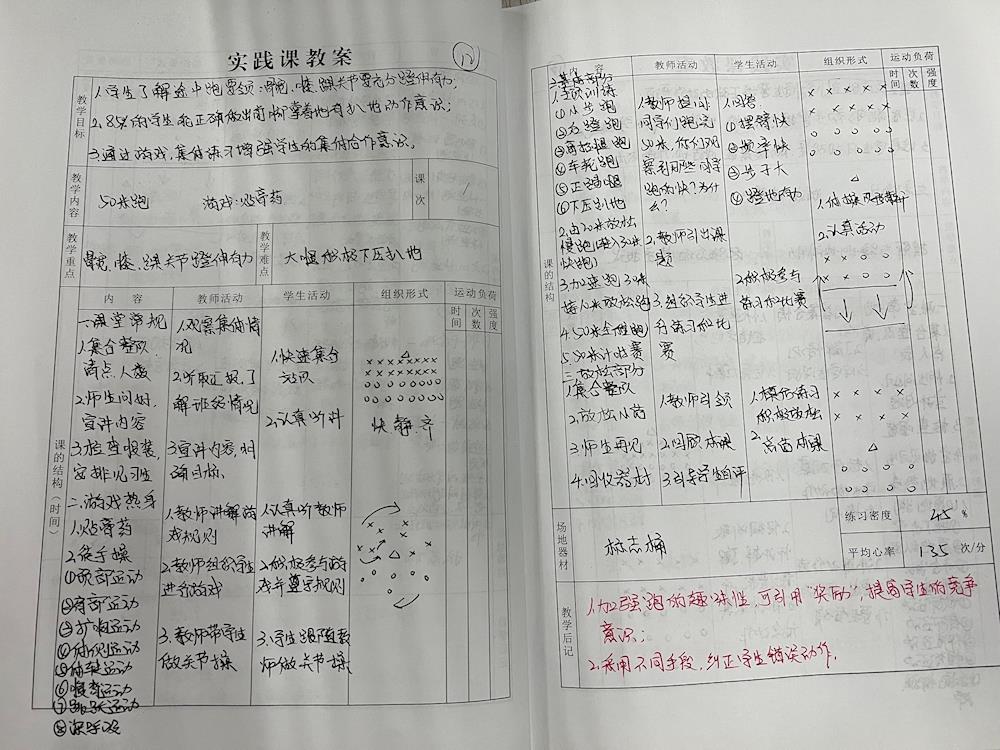 实践课教案
12
教学目标
1.学生了解途中跑要领:髋、膝、踝关节要充分蹬伸有力;
2.85%的学生能正确做出前脚掌着地有扒地动作意识;
3.通过游戏,集体练习增强学生的集体合作意识。
教学内容
50米跑 游戏:贴膏药
课次
1
教学重点
髋、膝、踝关节蹬伸有力
教学难点
大腿积极下压扒地
课的结构(时间)
内容 教师活动 学生活动 组织形式 运动负荷
时间 次数 强度
一.课堂常规
1.集合整队
清点人数
2.师生问好,
宣布内容
3.检查服装,
安排见习生
二.游戏热身
1.贴膏药
2.徒手操
①头部运动
②肩部运动
③扩胸运动
④体侧运动
⑤体转运动
⑥腹背运动
⑦跳跃运动
1.观察集合情
况
2.听取汇报,了
解班级情况
3.宣布内容,明
确目标
1.教师讲解游
戏规则
2.教师组织学生
进行游戏
3.教师带学生
做关节操
1.快速集合
站队
2.认真听讲
1.认真听教师
讲解
2.积极参与游
戏并遵守规则
3.学生跟随老
师做关节操
快 静 齐
内容 教师活动 学生活动 组织形式 运动负荷
时间 次数 强度
课的结构
三.基本部分
1.专项训练
①小步跑
②后蹬跑
③高抬腿跑
④车轮跑
⑤正踢腿
⑥下压扒地
2.由20米放松
慢跑(进入)30米
快跑)
3.加速跑30米
接入米放松跑
4.50米全程跑
5.50米计时赛
三.放松部分
1.集合整队
2.放松小药
3.师生再见
4.回收器材
1.教师提问
同学们跑完
50米,你们观
察到哪些同学
跑的快?为什
么?
2.教师引出课
题
3.组织学生进
行练习和比
赛
1.教师引领
2.回顾本课
3.引导学生自评
1.回答
①摆臂快
②频率快
③步子大
④蹬地有力
2.积极参与
练习和比赛
1.模仿练习
积极放松
2.总结本课
1.体操队形散开
2.认真活动
场地器材
标志桶
练习密度 45 %
平均心率 135 次/分
教学后记
1.加强跑的趣味性,可引用“奖励”,提高学生的竞争
意识;
2.采用不同手段,纠正学生错误动作。